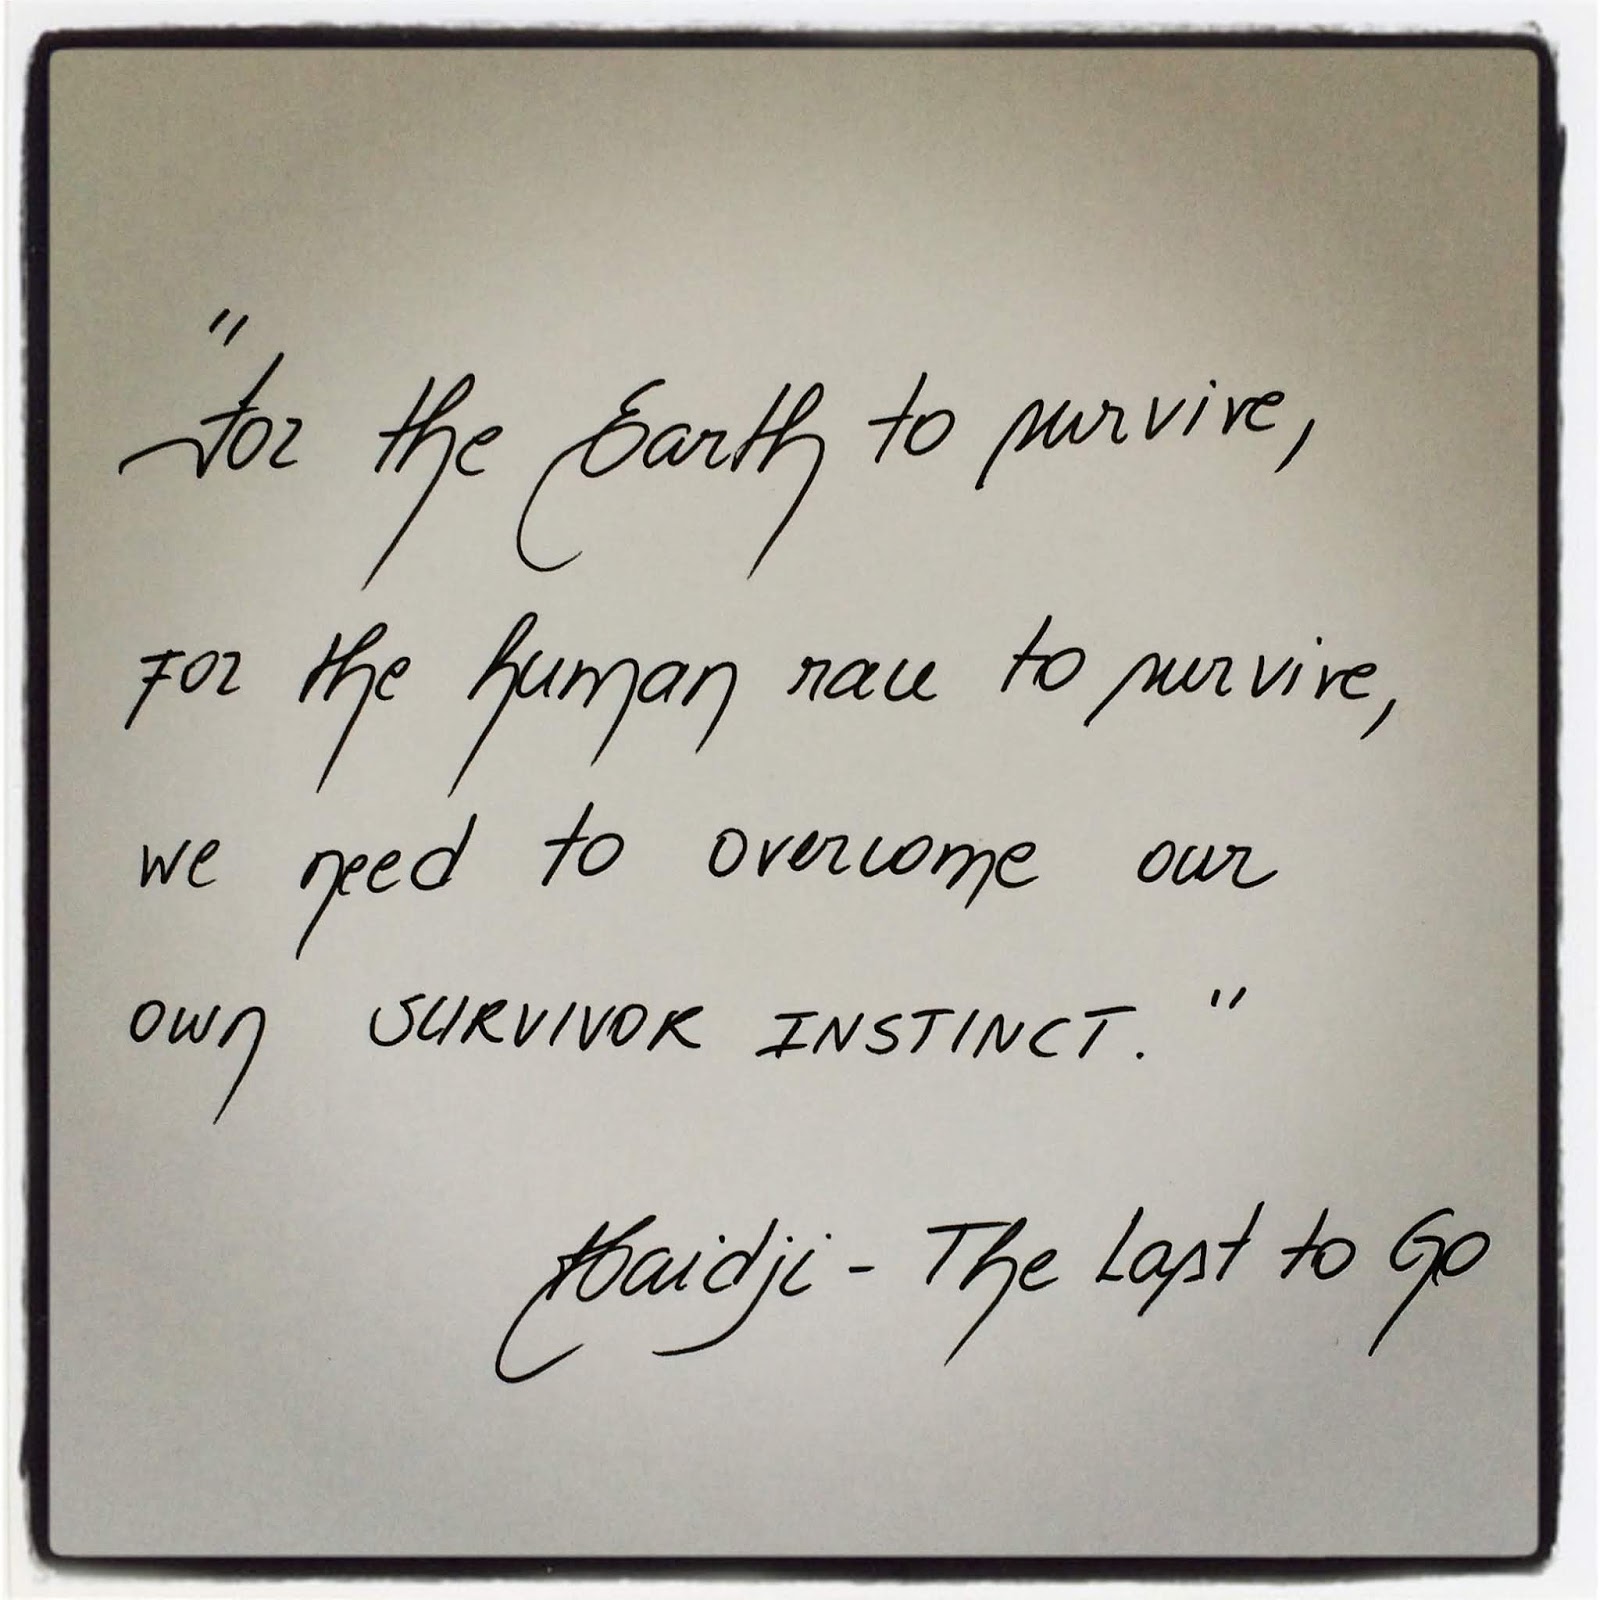 "for the Earth to survive,
For the human race to survive,
we need to overcome our
own SURVIVOR INSTINCT."
Haidji - The Last to Go